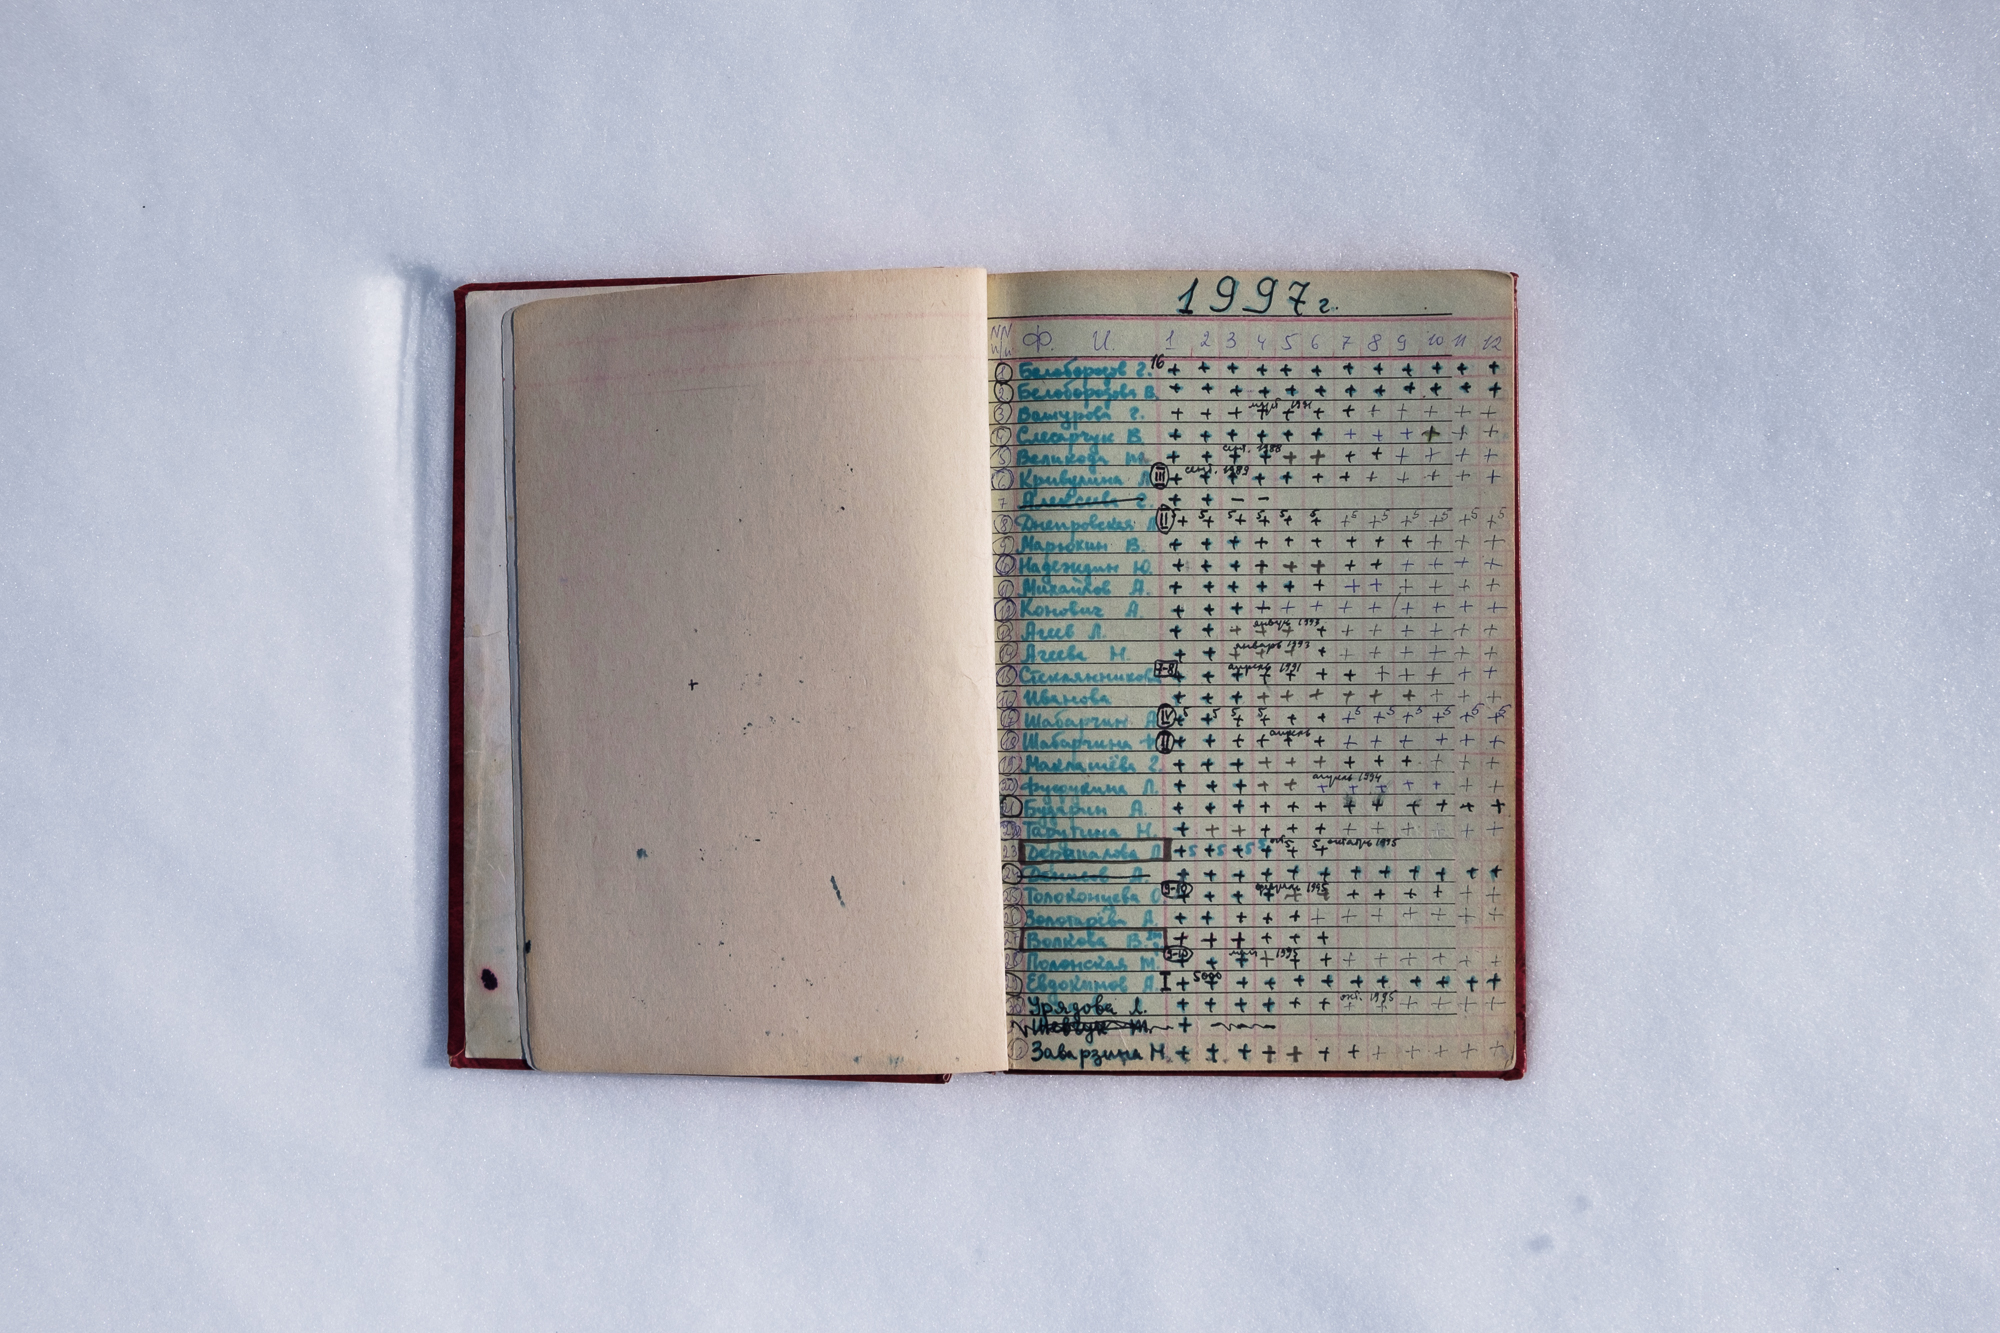 1997 г.
NN Ф. И. 1 2 3 4 5 6 7 8 9 10 11 12
1 Белобородов Г. 16 + + + + + + + + + + + +
2 Белобородова В. + + + + + + + + + + + +
3 Вашурова Г. + + + + + + + + + + + +
4 Слесарчук В. + + + + + + + + + + + +
5 сент. 1988 + + + + + + + + + + + +
6 Кривулина Л. III сент. 1989 + + + + + + + + + + + +
7 Алексеева Г. + + – –
8 Днепровская Л. II +5 +5 +5 +5 +5 +5 +5 +5 +5 +5 +5 +5
9 Марюхин В. + + + + + + + + + + + +
10 Надеждин Ю. + + + + + + + + + + + +
11 Михайлов А. + + + + + + + + + + + +
12 Конович А. + + + + + + + + + + + +
13 Агеев Л. январь 1993 + + + + + + + + + + + +
14 Агеева Н. январь 1993 + + + + + + + + + + + +
15 Стеклянникова 7-8 апрель 1991 + + + + + + + + + + + +
16 Иванова + + + + + + + + + + + +
17 Шабарчин А. IV +5 +5 +5 +5 + + +5 +5 +5 +5 +5 +5
18 Шабарчина II апрель + + + + + + + + + + + +
19 Маклашёва Г. + + + + + + + + + + + +
20 Л. апрель 1994 + + + + + + + + + +
21 А. + + + + + + + + + + + +
22 Тарутина Н. + + + + + + + + + + + +
23 Л. +5 +5 +5 +5 +5 +5 октябрь 1995
24 Денисов А. + + + + + + + + + + + +
25 Толоконцева О. 9-10 1995 + + + + + + + + + + + +
26 Золотарёва А. + + + + + + + + + + + +
27 Волкова В. + + + + + +
28 Полонская М. 9-10 май 1995 + + + + + + + + + + + +
29 Евдокимов А. I 5000 + + + + + + + + + + + +
30 Урядова Л. окт. 1995 + + + + + + + + + + + +
Шевчук М. +
Заварзина Н. + + + + + + + + + + + +